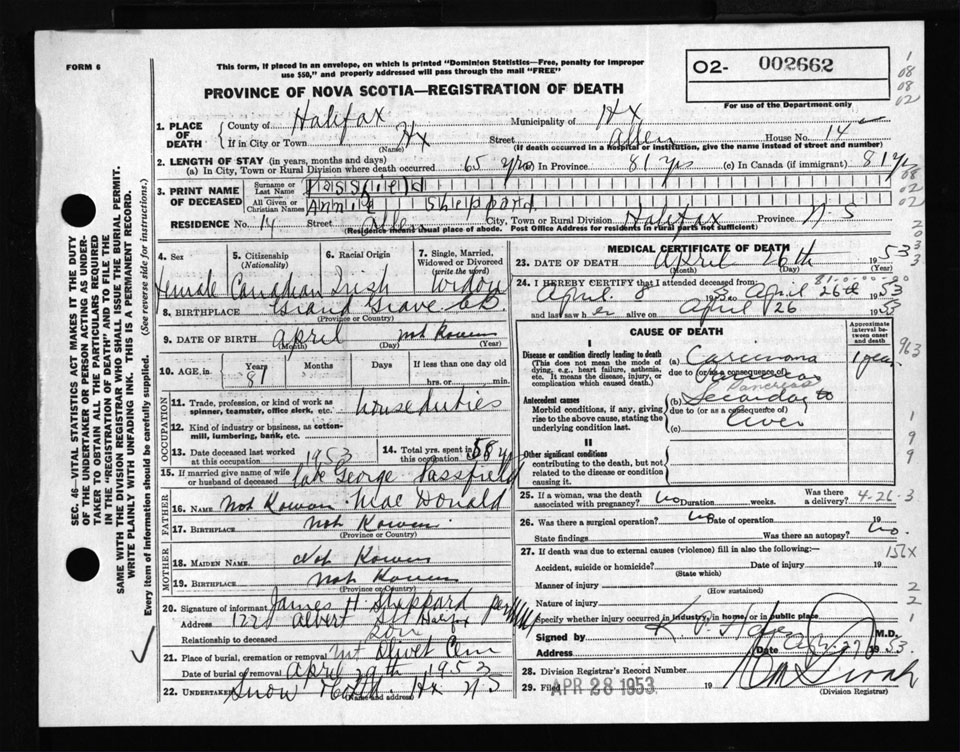 FORM 6
This form, if placed in an envelope, on which is printed "Dominion Statistics—Free, penalty for improper
use $50," and properly addressed will pass through the mail "FREE"
O2- 002662
For use of the Department only
1
08
08
02
PROVINCE OF NOVA SCOTIA—REGISTRATION OF DEATH
1. PLACE OF DEATH
County of Halifax Municipality of Hx
If in City or Town Hx Street Allen House No. 14
(Name) (If death occurred in a hospital or institution, give the name instead of street and number)
2. LENGTH OF STAY (in years, months and days)
(a) In City, Town or Rural Division where death occurred 65 yrs (b) In Province 81 yrs (c) In Canada (if immigrant) 81 yrs
3. PRINT NAME OF DECEASED
Surname or Last Name Passfield
All Given or Christian Names Annie Sheppard
RESIDENCE House No. 14 Street Allen City, Town or Rural Division Halifax Province N.S
(Residence means usual place of abode. Post Office Address for residents in rural parts not sufficient)
4. Sex
5. Citizenship (Nationality)
6. Racial Origin
7. Single, Married, Widowed or Divorced (write the word)
Female Canadian Irish Widow
8. BIRTHPLACE Grand Grave
(Province or Country)
9. DATE OF BIRTH April not Kowen
(Month) (Day) (Year)
10. AGE, in Years Months Days If less than one day old
81 hrs. or min.
OCCUPATION
11. Trade, profession, or kind of work as
spinner, teamster, office clerk, etc. house duties
12. Kind of industry or business, as cotton-
mill, lumbering, bank, etc.
13. Date deceased last worked
at this occupation 1953
14. Total yrs. spent in
this occupation 58 yrs
15. If married give name of wife
or husband of deceased late George Passfield
FATHER
16. Name Not Kowen MacDonald
17. Birthplace Not Kowen
(Province or Country)
MOTHER
18. MAIDEN NAME Not Kowen
19. BIRTHPLACE Not Kowen
(Province or Country)
20. Signature of informant James H Sheppard per
Address 122 Albert St Halifax
Relationship to deceased Son
21. Place of burial, cremation or removal Mt Olivet Cem
Date of burial or removal April 29th 1953
22. UNDERTAKER Snow Hx N S
(Name and address)
MEDICAL CERTIFICATE OF DEATH
23. DATE OF DEATH April 26th 1953
(Month) (Day) (Year)
24. I HEREBY CERTIFY that I attended deceased from:
April 8 1953 April 26th 1953
and last saw her alive on April 26 1953
CAUSE OF DEATH
Approximate interval between onset and death
I
Disease or condition directly leading to death
(This does not mean the mode of dying, e.g., heart failure, asthenia, etc. It means the disease, injury, or complication which caused death.
(a) Carcinoma 1 year
due to (or as a consequence of)
Pancreas
Antecedent causes
Morbid conditions, if any, giving rise to the above cause, stating the underlying condition last.
(b) Secondary to
due to (or as a consequence of)
(c) Liver
II
Other significant conditions
contributing to the death, but not related to the disease or condition causing it.
25. If a woman, was the death
associated with pregnancy? no Duration weeks. Was there a delivery? 4-26-3
26. Was there a surgical operation? no Date of operation 19
State findings Was there an autopsy? no.
27. If death was due to external causes (violence) fill in also the following:—
Accident, suicide or homicide? Date of injury 19
(State which)
Manner of injury
(How sustained)
Nature of injury
Specify whether injury occurred in industry, in home, or in public place
Signed by M.D.
Address Date Apr 27 1953.
28. Division Registrar's Record Number
29. Filed APR 28 1953 19
(Division Registrar)
963
157x
SEC. 46—VITAL STATISTICS ACT MAKES IT THE DUTY
OF THE UNDERTAKER OR PERSON ACTING AS UNDER-
TAKER TO OBTAIN ALL THE PARTICULARS REQUIRED
IN THE "REGISTRATION OF DEATH" AND TO FILE THE
SAME WITH THE DIVISION REGISTRAR WHO SHALL ISSUE THE BURIAL PERMIT.
WRITE PLAINLY WITH UNFADING INK. THIS IS A PERMANENT RECORD.
Every item of information should be carefully supplied. (See reverse side for instructions.)